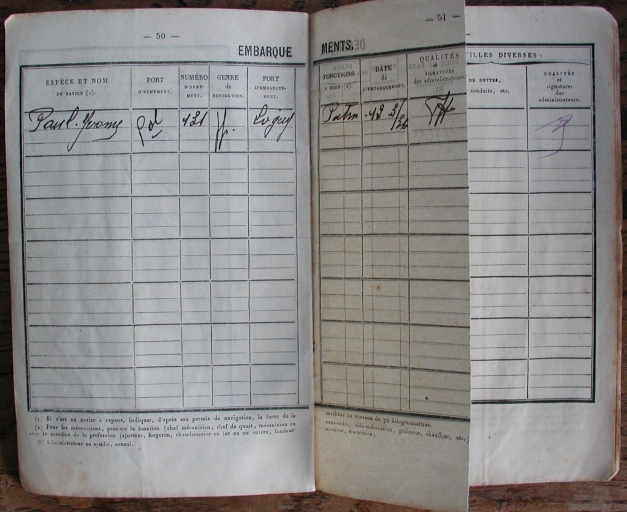 — 50 —
EMBARQUE
ESPÈCE ET NOM
DU NAVIRE (1).
PORT
D'ARMEMENT.
NUMÉRO
D'ARME-
MENT.
GENRE
de
NAVIGATION.
PORT
D'EMBARQUE-
MENT.
Paul. Yvonne
121
(1) Si c'est un navire à vapeur, indiquer, d'après son permis de navigation, la force de la
(2) Pour les mécaniciens, préciser la fonction (chef mécanicien, chef de quart, mécanicien en
le nombre de la profession (ajusteur, forgeron, chaudronnier en fer ou en cuivre, fondeur
(3) Administrateur ou syndic, consul.
— 51 —
MENTS
FONCTIONS
À BORD (2).
DATE
de
L'EMBARQUEMENT.
QUALITÉS
et
SIGNATURES
des administrateurs.
(3)
Patron
12
machine en chevaux de 75 kilogrammètres.
chauffeur, etc.
ILLES DIVERSES.
DE DETTES,
conduite, etc.
QUALITÉS
et
signatures
des
administrateurs.